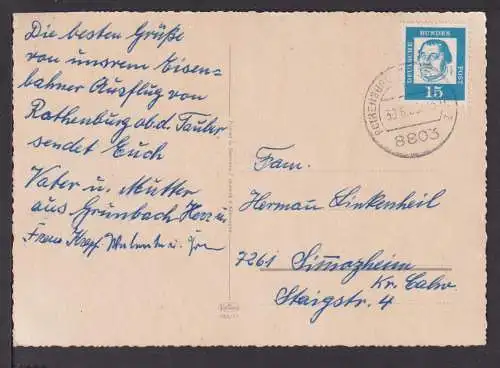 Die besten Grüße
von unsrem Eisen-
bahner Ausflug von
Rothenburg ob.d. Tauber
sendet Euch
Vater u. Mutter
aus Grunbach
Frau
DEUTSCHE BUNDES POST
15
8803
Fam.
Hermann Linkenheil
7261 Simmozheim
Kr. Calw
Staigstr. 4